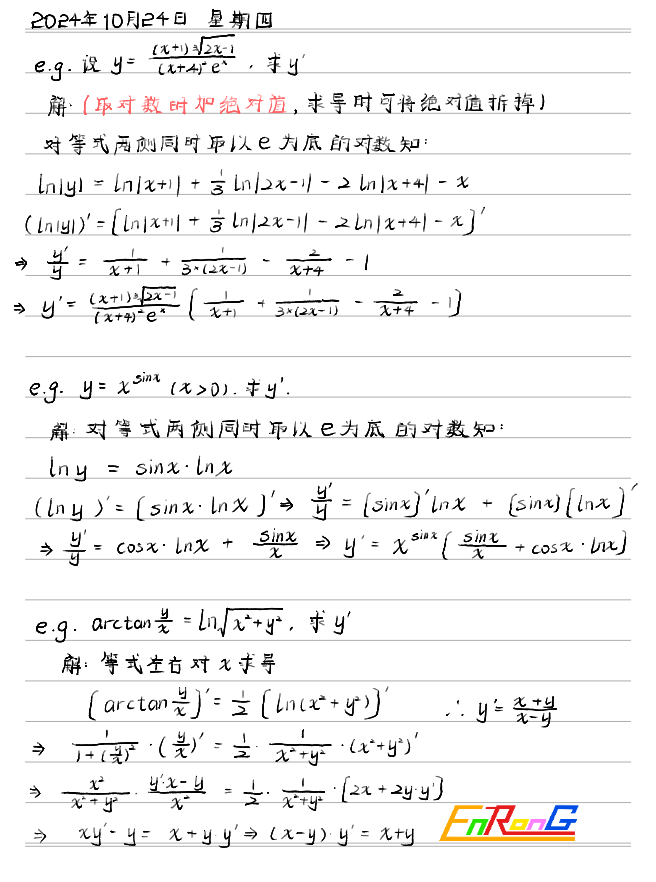 2024年10月24日 星期四
e.g. 设 y = \frac{(x+1)\sqrt[3]{2x-1}}{(x+4)^2 e^x}, 求y'
解: (取对数时加绝对值, 求导时可将绝对值拆掉)
对等式两侧同时取以e为底的对数知:
ln|y| = ln|x+1| + \frac{1}{3} ln|2x-1| - 2 ln|x+4| - x
(ln|y|)' = [ln|x+1| + \frac{1}{3} ln|2x-1| - 2ln|x+4| - x]'
⇒ \frac{y'}{y} = \frac{1}{x+1} + \frac{1}{3×(2x-1)} - \frac{2}{x+4} - 1
⇒ y' = \frac{(x+1)\sqrt[3]{2x-1}}{(x+4)^2 e^x} [\frac{1}{x+1} + \frac{1}{3×(2x-1)} - \frac{2}{x+4} - 1]
e.g. y = x^{sinx} (x>0). 求y'.
解: 对等式两侧同时取以e为底的对数知:
ln y = sinx·lnx
(ln y)' = [sinx·lnx]' ⇒ \frac{y'}{y} = [sinx]'lnx + [sinx][lnx]'
⇒ \frac{y'}{y} = cosx·lnx + \frac{sinx}{x} ⇒ y' = x^{sinx}[\frac{sinx}{x} + cosx·lnx]
e.g. arctan\frac{y}{x} = ln\sqrt{x^2+y^2}, 求y'
解: 等式左右对x求导
[arctan\frac{y}{x}]' = \frac{1}{2}[ln(x^2+y^2)]'
∴ y' = \frac{x+y}{x-y}
⇒ \frac{1}{1+(\frac{y}{x})^2}·(\frac{y}{x})' = \frac{1}{2}·\frac{1}{x^2+y^2}·(x^2+y^2)'
⇒ \frac{x^2}{x^2+y^2}·\frac{y'·x-y}{x^2} = \frac{1}{2}·\frac{1}{x^2+y^2}·[2x+2y·y']
⇒ xy'-y = x+y·y' ⇒ (x-y)·y' = x+y
EnRonG